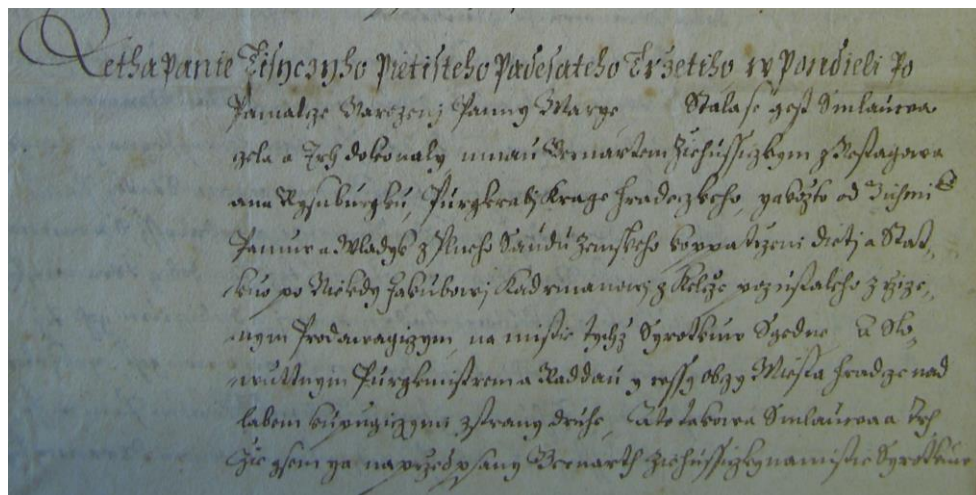 Letha Panie Tisyczyho Pietisteho Padesateho Trzetiho w Pondieli Po
Pamatcze Narozenj Panny Marye Stala se gest Smlauwa
czela a Trh dokonaly mnau Bernartem Ziehussiczkym z Nestagowa
ana Rysnburgku, Purgkrabj Krage Hradeczkeho, yakozto od
Panuw a Wladyk z Plneho Saudu Zemskeho k oppatrzeni dietj a Stat,
kuo po Niekdy Jakubowj Kadrmanowj z pozustaleho zrzize,
nym Prodawagiczym, na mistie tychz Syrotkuw Sgedne A Slo,
wuttnym Purgkmistrem a Raddau y wssy obczy Miesta Hradcze nad
labem kupugiczymi z strany druhe, A to takowa Smlauwa a Trh
Zie gsem ya naprzed psany Bernarth Ziehussiczky na mistie Syrotkuw